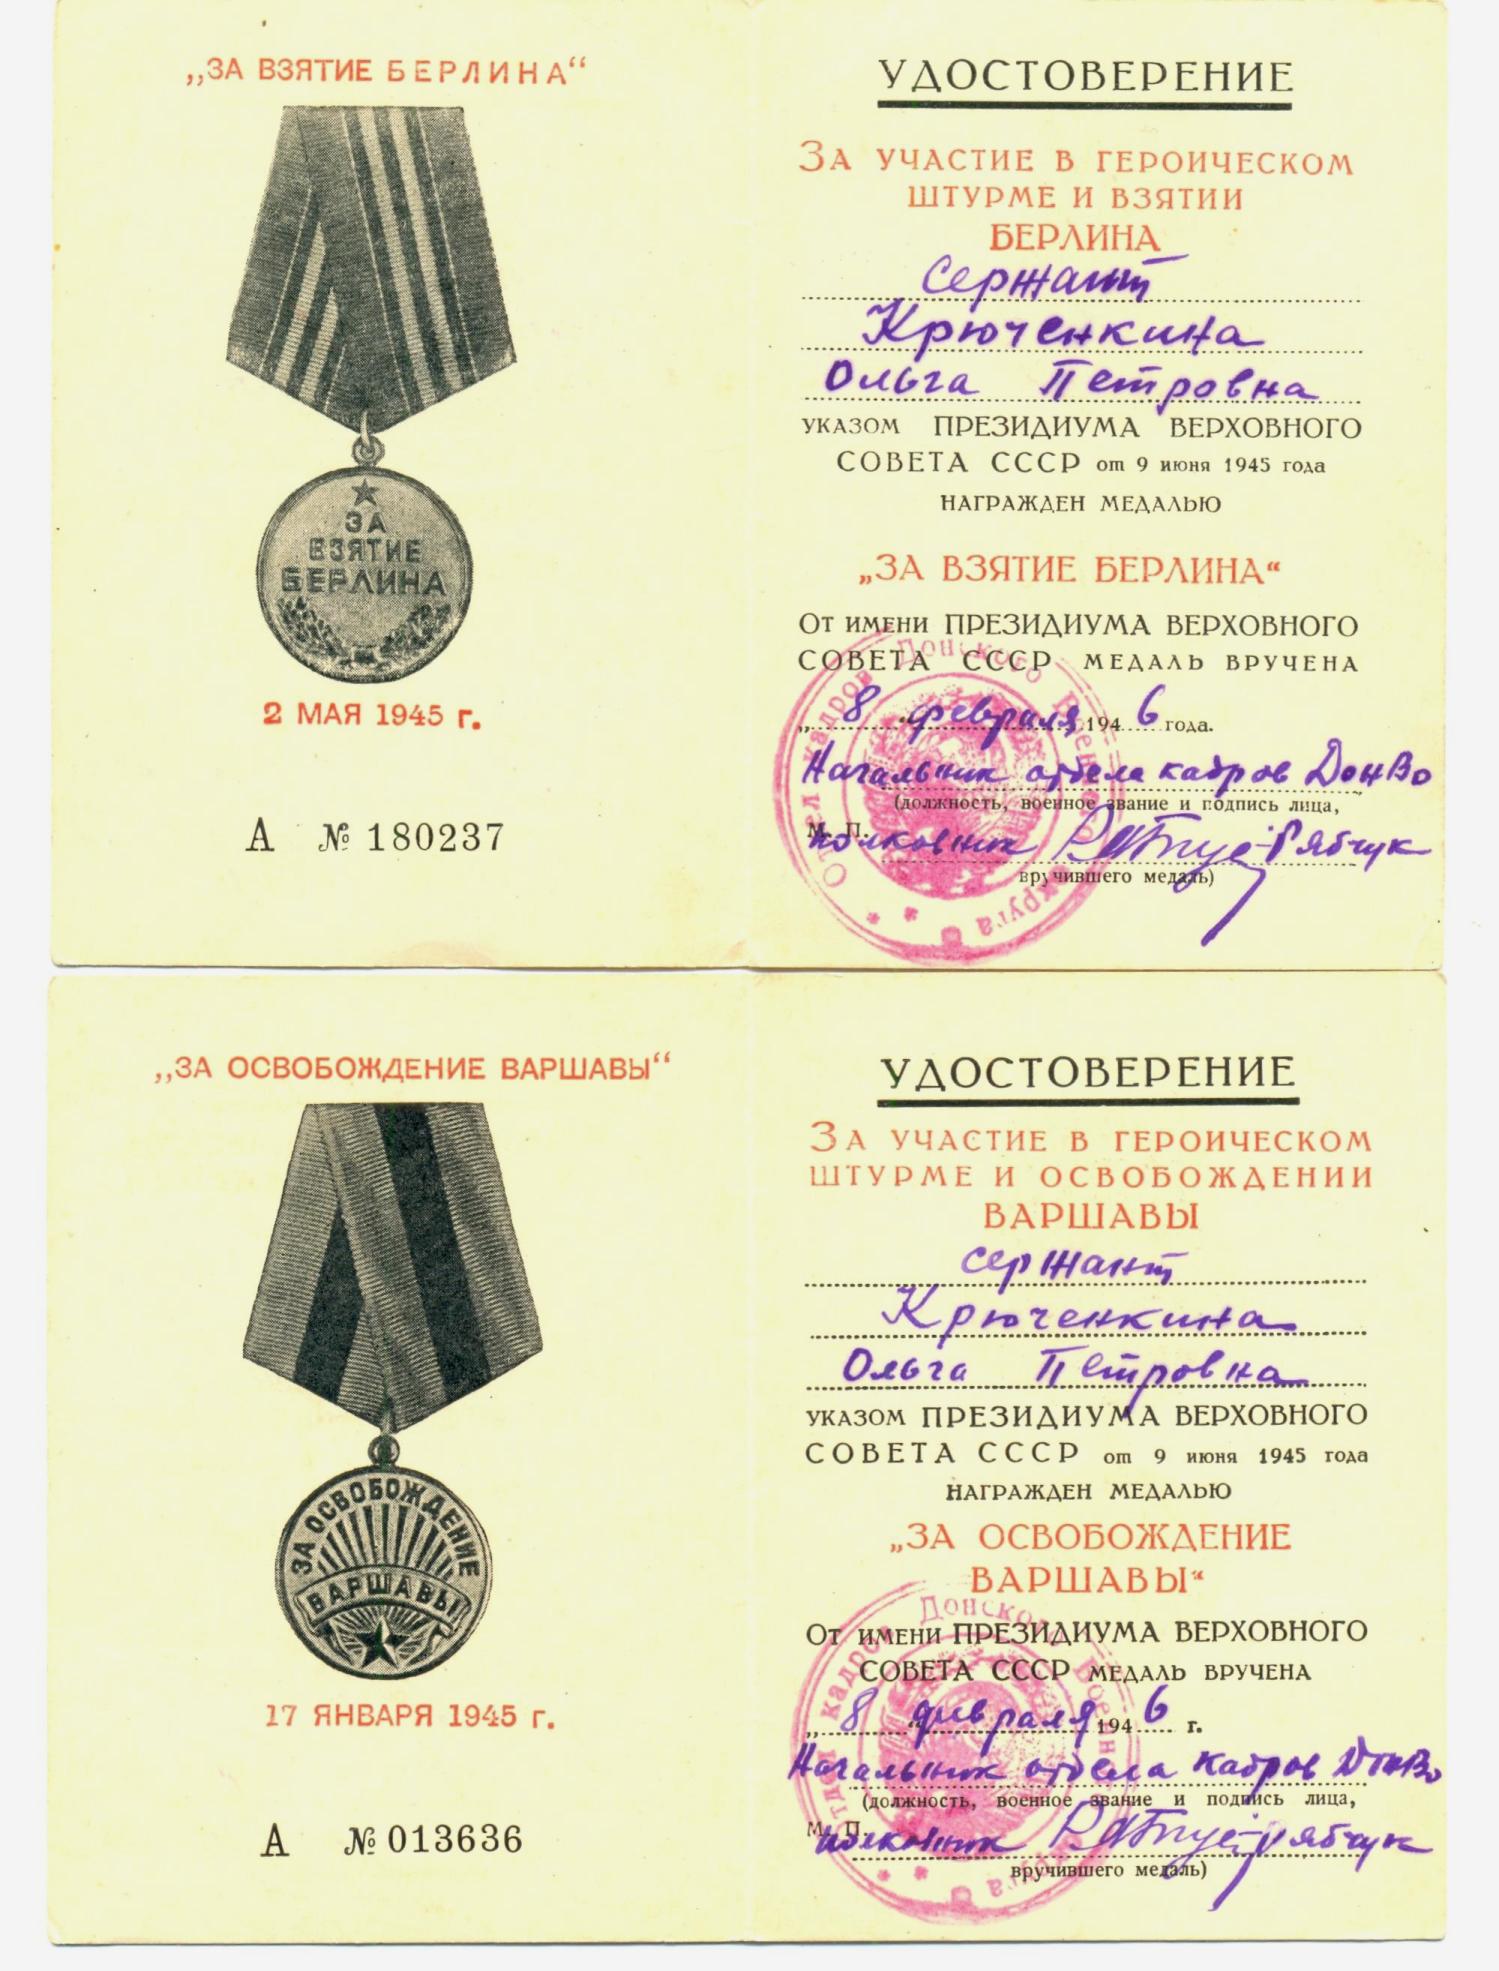 „ЗА ВЗЯТИЕ БЕРЛИНА“
ЗА
ВЗЯТИЕ
БЕРЛИНА
2 МАЯ 1945 г.
А № 180237
УДОСТОВЕРЕНИЕ
ЗА УЧАСТИЕ В ГЕРОИЧЕСКОМ
ШТУРМЕ И ВЗЯТИИ
БЕРЛИНА
Сержант
Крюченкина
Ольга Петровна
УКАЗОМ ПРЕЗИДИУМА ВЕРХОВНОГО
СОВЕТА СССР от 9 июня 1945 года
НАГРАЖДЕН МЕДАЛЬЮ
„ЗА ВЗЯТИЕ БЕРЛИНА“
ОТ ИМЕНИ ПРЕЗИДИУМА ВЕРХОВНОГО
СОВЕТА СССР МЕДАЛЬ ВРУЧЕНА
„8“ февраля 1946 года.
Начальник отдела кадров ДонВо
(должность, военное звание и подпись лица,
М. П.
полковник Рябчук
вручившего медаль)
Отдел кадров Донского Военного Округа
„ЗА ОСВОБОЖДЕНИЕ ВАРШАВЫ“
ЗА ОСВОБОЖДЕНИЕ
ВАРШАВЫ
17 ЯНВАРЯ 1945 г.
А № 013636
УДОСТОВЕРЕНИЕ
ЗА УЧАСТИЕ В ГЕРОИЧЕСКОМ
ШТУРМЕ И ОСВОБОЖДЕНИИ
ВАРШАВЫ
сержант
Крюченкина
Ольга Петровна
УКАЗОМ ПРЕЗИДИУМА ВЕРХОВНОГО
СОВЕТА СССР от 9 июня 1945 года
НАГРАЖДЕН МЕДАЛЬЮ
„ЗА ОСВОБОЖДЕНИЕ
ВАРШАВЫ“
ОТ ИМЕНИ ПРЕЗИДИУМА ВЕРХОВНОГО
СОВЕТА СССР МЕДАЛЬ ВРУЧЕНА
„8“ февраля 1946 г.
Начальник отдела кадров ДонВо
(должность, военное звание и подпись лица,
М. П.
полковник Рябчук
вручившего медаль)
Отдел кадров Донского Военного Округа